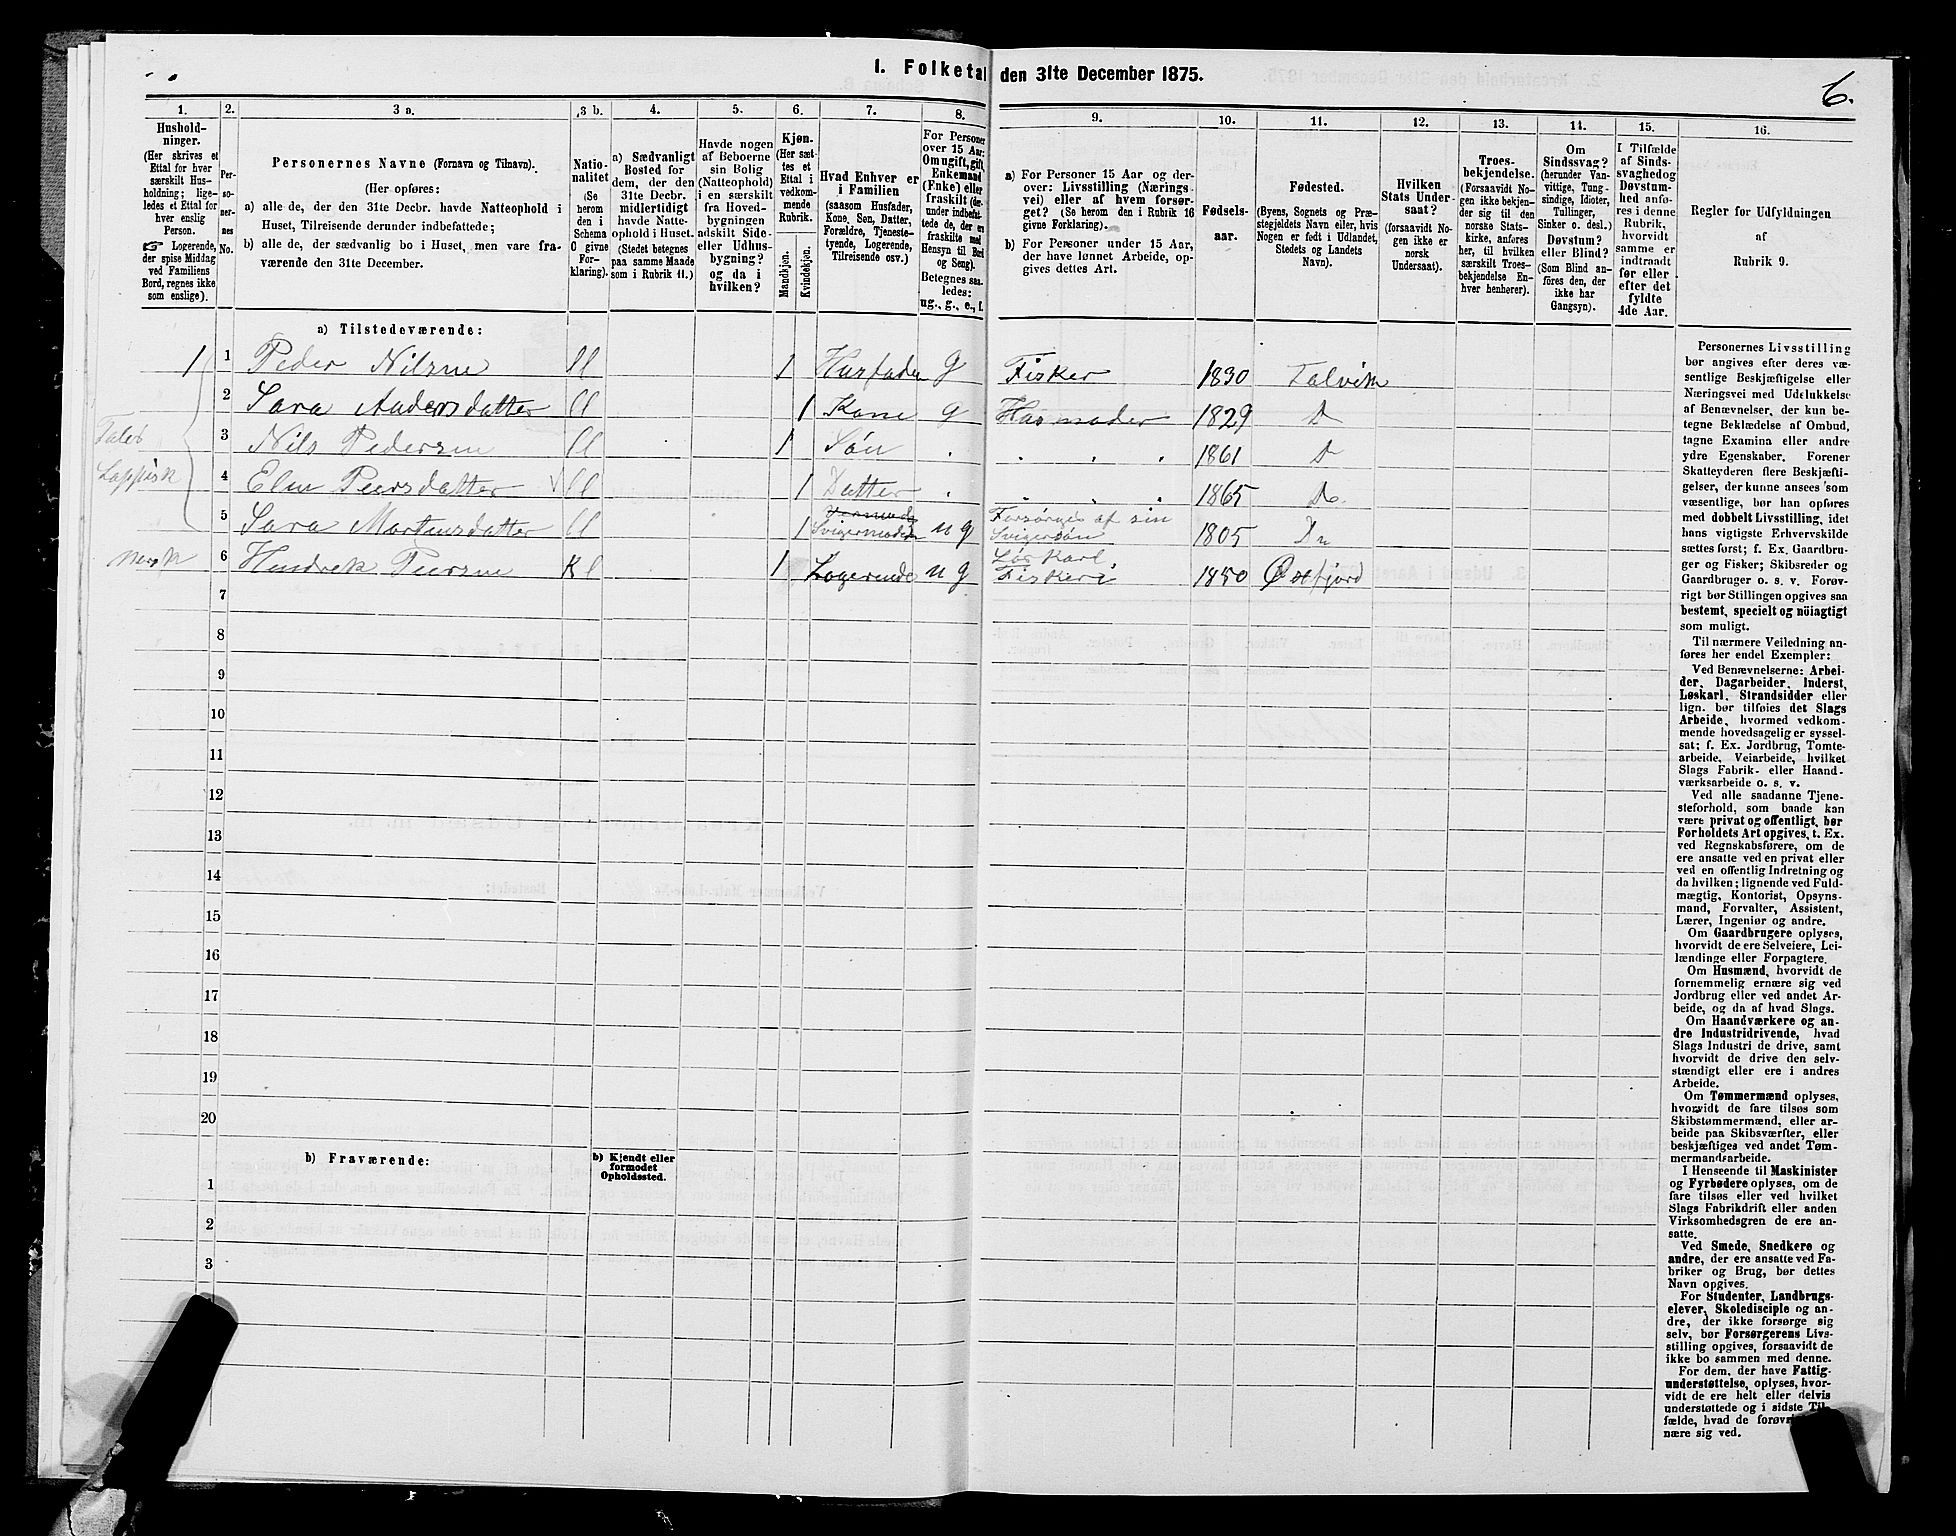 1. Folketal den 31te December 1875.
6.
1. 2. 3 a. 3 b. 4. 5. 6. 7. 8. 9. 10. 11. 12. 13. 14. 15. 16.
Hushold-
ninger.
(Her skrives et
Ettal for hver
særskilt Hus-
holdning; lige-
ledes et Ettal for
hver enslig
Person.
☞ Logerende,
der spise Middag
ved Familiens
Bord, regnes ikke
som enslige).
Per-
so-
ner-
nes
No.
Personernes Navne (Fornavn og Tilnavn).
(Her opføres:
a) alle de, der den 31te Decbr. havde Natteophold i
Huset, Tilreisende derunder indbefattede;
b) alle de, der sædvanlig bo i Huset, men vare fra-
værende den 31te December.
Natio-
nalitet
(Se
herom
den i
Schema
C givne
For-
klaring).
a) Sædvanligt
Bosted for
dem, der den
31te Decbr.
midlertidigt
havde Natte-
ophold i Huset.
(Stedet betegnes
paa samme Maade
som i Rubrik 11.)
Havde nogen
af Beboerne
sin Bolig
(Natteophold)
i en særskilt
fra Hoved-
bygningen
adskilt Side-
eller Udhus-
bygning?
og da i
hvilken?
Kjøn.
(Her sæt-
tes et
Ettal i
vedkom-
mende
Rubrik.
Mandkjøn.
Kvindekjøn.
Hvad Enhver er
i Familien
(saasom Husfader,
Kone, Søn, Datter,
Forældre, Tjeneste-
tyende, Logerende,
Tilreisende osv.)
For Personer
over 15 Aar:
Om ugift, gift,
Enkemand
(Enke) eller
fraskilt
og Seng).
Betegnes saa-
ledes:
ug., g., e., f.
a) For Personer 15 Aar og der-
over: Livsstilling (Nærings-
vei) eller af hvem forsør-
get? (Se herom den i Rubrik 16
givne Forklaring).
b) For Personer under 15 Aar,
der have lønnet Arbeide, op-
gives dettes Art.
Fødsels-
aar.
Fødested.
(Byens, Sognets og Præ-
stegjeldets Navn eller, hvis
Nogen er født i Udlandet,
Stedets og Landets
Navn).
Hvilken
Stats Under-
saat?
(forsaavidt No-
gen ikke er
norsk
Undersaat).
Troes-
bekjendelse.
(Forsaavidt No-
gen ikke bekjen-
der sig til den
norske Stats-
kirke, anføres
her, til hvilken
særskilt Troes-
bekjendelse En-
hver henhører).
Om
Sindssvag?
(herunder Van-
vittige, Tung-
sindige, Idioter,
Tullinger,
Sinker o. desl.)
Døvstum?
eller Blind?
(Som Blind an-
føres den, der
ikke har
Gangsyn).
I Tilfælde
af Sinds-
svaghed og
Døvstum-
hed anfø-
res i denne
Rubrik,
hvorvidt
samme er
indtraadt
før eller
efter det
fyldte
4de Aar.
Regler for Udfyldningen
af
Rubrik 9.
a) Tilstedeværende:
1 1 Peder Nilsne 1 Husfader g Fisker 1830 Talvik
2 Sara Andersdatter 1 Kone g Husmoder 1829 D
3 Nils Pedersen 1 Søn 1861 D
4 Elen Peersdatter 1 Datter 1865 D
5 Sara Mortensdatter 1 Svigermoder ug Forsørges af sin Svigersøn 1805 Do
6 Hendrek Peersne Kl 1 Logerende ug Løs Karl Fiskeri 1850 Øxfjord
Taler
Lappisk
norsk
7
8
9
10
11
12
13
14
15
16
17
18
19
20
b) Fraværende:
b) Kjendt eller
formodet
Opholdssted.
1
2
3
Personernes Livsstilling
bør angives efter deres væ-
sentlige Beskjæftigelse eller
Næringsvei med Udelukkelse
af Benævnelser, der kun be-
tegne Beklædelse af Ombud,
tagne Examina eller andre
ydre Egenskaber. Forener
Skatteyderen flere Beskjæfti-
gelser, der kunne ansees som
væsentlige, bør han opføres
med dobbelt Livsstilling, idet
hans vigtigste Erhvervskilde
sættes først; f. Ex. Gaardbru-
ger og Fisker; Skibsreder og
Gaardbruger o. s. v. Forøv-
rigt bør Stillingen opgives saa
bestemt, specielt og nöiagtigt
som muligt.
Til nærmere Veiledning an-
føres her endel Exempler:
Ved Benævnelserne: Arbei-
der, Dagarbeider, Inderst,
Løskarl, Strandsidder eller
lign. bør tilføies det Slags
Arbeide, hvormed vedkom-
mende hovedsagelig er syssel-
sat; f. Ex. Jordbrug, Tomte-
arbeide, Veiarbeide, hvilket
Slags Fabrik- eller Haand-
værksarbeide o. s. v.
Ved alle saadanne Tjene-
steforhold, som baade kan
være privat og offentligt, bør
Forholdets Art opgives, t. Ex.
ved Regnskabsførere, om de
ere ansatte ved en privat eller
ved en offentlig Indretning og
da hvilken; lignende ved Fuld-
mægtig, Kontorist, Opsyns-
mand, Forvalter, Assistent,
Lærer, Ingeniør og andre.
Om Gaardbrugere oplyses,
hvorvidt de ere Selveiere, Lei-
lændinge eller Forpagtere.
Om Husmænd, hvorvidt de
fornemmelig ernære sig ved
Jordbrug eller ved andet Ar-
beide, og da af hvad Slags.
Om Haandværkere og an-
dre Industridrivende, hvad
Slags Industri de drive, samt
hvorvidt de drive den selv-
stændigt eller ere i andres
Arbeide.
Om Tømmermænd oplyses,
hvorvidt de fare tilsøs som
Skibstømmermænd, eller ar-
beide paa Skibsværfter, eller
beskjæftiges ved andet Tøm-
mermandsarbeide.
I Henseende til Maskinister
og Fyrbødere oplyses, om de
fare tilsøs eller ved hvilket
Slags Fabrikdrift eller anden
Virksomhedsgren de ere an-
satte.
Ved Smede, Snedkere og
andre, der ere ansatte ved Fa-
briker og Brug, bør dettes
Navn opgives.
For Studenter, Landbrugs-
elever, Skoledisciple og an-
dre, der ikke forsørge sig
selv, bør Forsørgerens Livs-
stilling opgives, forsaavidt de
ikke bo sammen med denne.
For dem, der have Fattig-
understøttelse, oplyses, hvor-
vidt de ere helt eller delvis
understøttede og i sidste Til-
fælde, hvad de
nære sig ved.